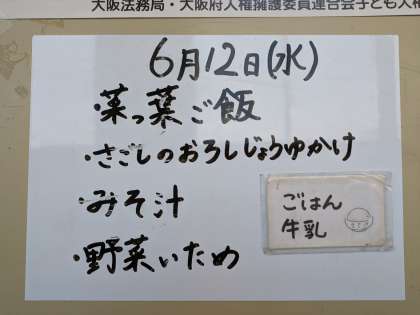 大阪法務局・大阪府人権擁護委員連合会子ども人権
6月12日(水)
・菜っ葉ご飯
・さごしのおろしじょうゆかけ
・みそ汁
・野菜いため
ごはん
牛乳